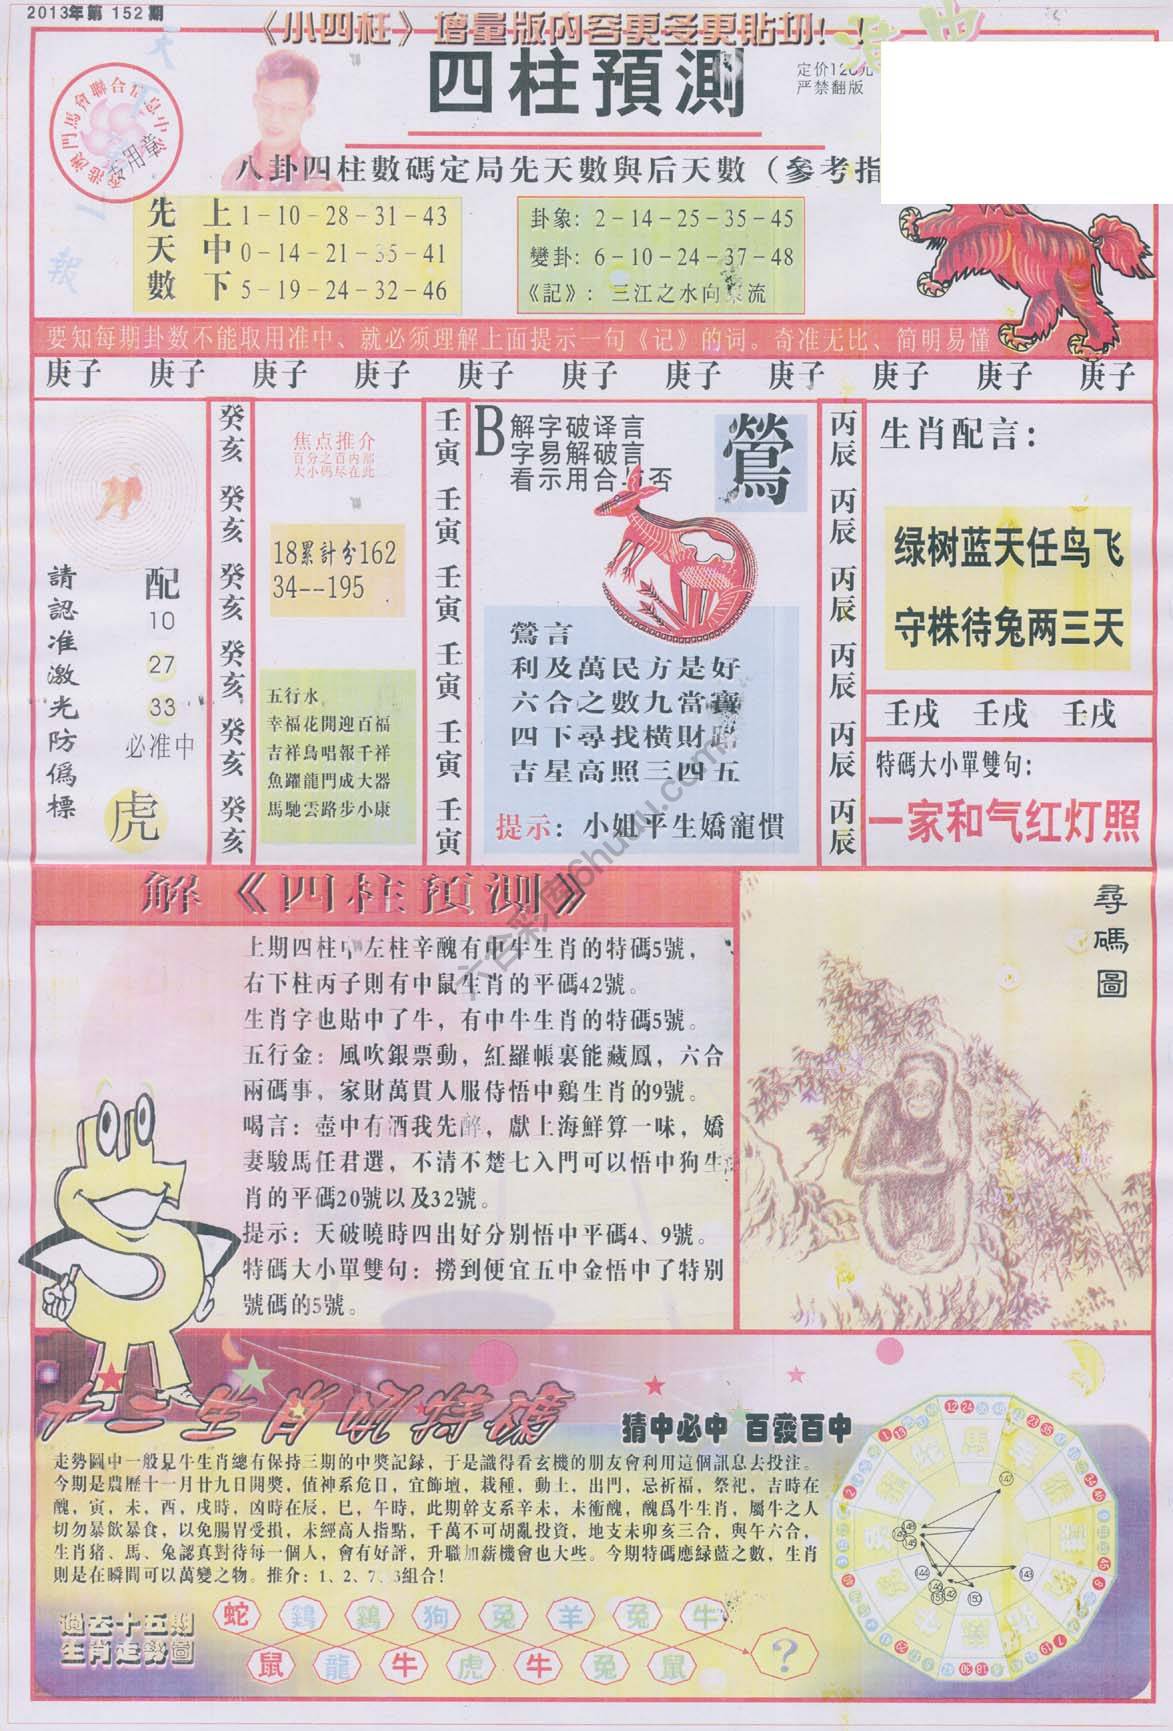 2013年第 152 期
《小四柱》增量版内容更多更貼切！！
四柱預測
定价120元
严禁翻版
港澳門馬會聯合信息中
专用章
天
一
報
八卦四柱數碼定局先天數與后天數（參考指
先天數
上 1－10－28－31－43
中 0－14－21－35－41
下 5－19－24－32－46
卦象：2－14－25－35－45
變卦：6－10－24－37－48
《記》：三江之水向東流
要知每期卦数不能取用准中、就必须理解上面提示一句《记》的词。奇准无比、简明易懂
庚子 庚子 庚子 庚子 庚子 庚子 庚子 庚子 庚子 庚子 庚子
請認准激光防僞標
配
10
27
33
必准中
虎
癸亥 癸亥 癸亥 癸亥 癸亥 癸亥
焦点推介
百分之百内部
大小码尽在此
18累計分162
34--195
五行水
幸福花開迎百福
吉祥鳥唱報千祥
魚躍龍門成大器
馬馳雲路步小康
壬寅 壬寅 壬寅 壬寅 壬寅 壬寅
B
解字破译言
字易解破言
看示用合与否
鶯
鶯言
利及萬民方是好
六合之數九當寶
四下尋找橫財路
吉星高照三四五
提示：小姐平生嬌寵慣
丙辰 丙辰 丙辰 丙辰 丙辰 丙辰
生肖配言：
绿树蓝天任鸟飞
守株待兔两三天
壬戌 壬戌 壬戌
特碼大小單雙句：
一家和气红灯照
解《四柱預測》
上期四柱中左柱辛醜有中牛生肖的特碼5號，
右下柱丙子則有中鼠生肖的平碼42號。
生肖字也貼中了牛，有中牛生肖的特碼5號。
五行金：風吹銀票動，紅羅帳裏能藏鳳，六合
兩碼事，家財萬貫人服侍悟中鷄生肖的9號。
喝言：壺中有酒我先醉，獻上海鮮算一味，嬌
妻駿馬任君選，不清不楚七入門可以悟中狗生
肖的平碼20號以及32號。
提示：天破曉時四出好分别悟中平碼4、9號。
特碼大小單雙句：撈到便宜五中金悟中了特别
號碼的5號。
尋碼圖
六合彩库6huuu.com
猜中必中 百發百中
走勢圖中一般見牛生肖總有保持三期的中奬記録，于是識得看玄機的朋友會利用這個訊息去投注。
今期是農歷十一月廿九日開奬，值神系危日，宜飾壇，栽種，動土，出門，忌祈福，祭祀，吉時在
醜，寅，未，酉，戌時，凶時在辰，巳，午時，此期幹支系辛未，未衝醜，醜爲牛生肖，屬牛之人
切勿暴飲暴食，以免腸胃受損，未經高人指點，千萬不可胡亂投資，地支未卯亥三合，與午六合，
生肖猪、馬、兔認真對待每一個人，會有好評，升職加薪機會也大些。今期特碼應緑藍之數，生肖
則是在瞬間可以萬變之物。推介：1、2、7、3組合！
過去十五期
生肖走勢圖
蛇 鷄 鷄 狗 兔 羊 兔 牛
鼠 龍 牛 虎 牛 兔 鼠
？